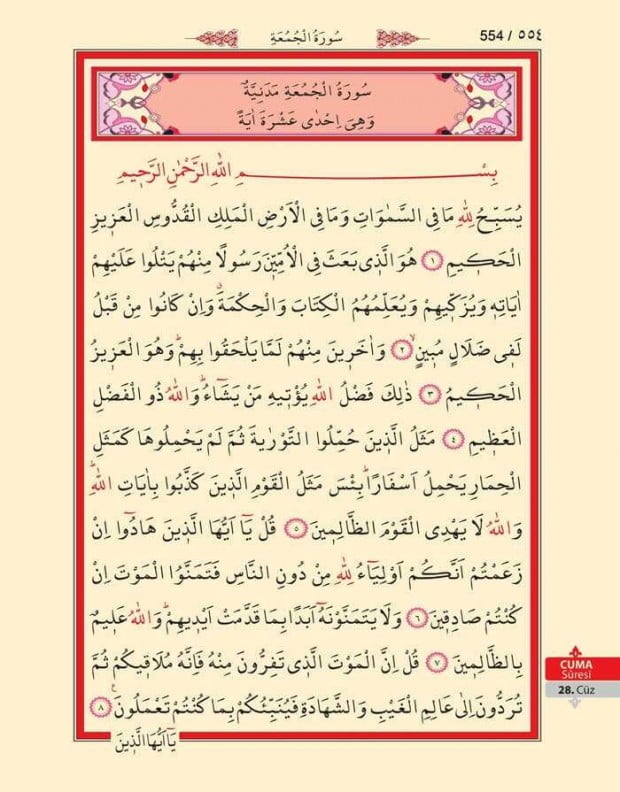 554 / ٥٥٤
سُورَةُ الْجُمُعَةِ
سُورَةُ الْجُمُعَةِ مَدَنِيَّةٌ
وَهِيَ اِحْدٰى عَشْرَةَ اٰيَةً
بِسْمِ اللّٰهِ الرَّحْمٰنِ الرَّح۪يمِ
يُسَبِّحُ لِلّٰهِ مَا فِي السَّمٰوَاتِ وَمَا فِي الْاَرْضِ الْمَلِكِ الْقُدُّوسِ الْعَز۪يزِ
الْحَك۪يمِ ﴿١﴾ هُوَ الَّذ۪ي بَعَثَ فِي الْاُمِّيّ۪نَ رَسُولًا مِنْهُمْ يَتْلُوا عَلَيْهِمْ
اٰيَاتِه۪ وَيُزَكّ۪يهِمْ وَيُعَلِّمُهُمُ الْكِتَابَ وَالْحِكْمَةَۗ وَاِنْ كَانُوا مِنْ قَبْلُ
لَف۪ي ضَلَالٍ مُب۪ينٍۙ ﴿٢﴾ وَاٰخَر۪ينَ مِنْهُمْ لَمَّا يَلْحَقُوا بِهِمْۜ وَهُوَ الْعَز۪يزُ
الْحَك۪يمُ ﴿٣﴾ ذٰلِكَ فَضْلُ اللّٰهِ يُؤْت۪يهِ مَنْ يَشَٓاءُۜ وَاللّٰهُ ذُو الْفَضْلِ
الْعَظ۪يمِ ﴿٤﴾ مَثَلُ الَّذ۪ينَ حُمِّلُوا التَّوْرٰيةَ ثُمَّ لَمْ يَحْمِلُوهَا كَمَثَلِ
الْحِمَارِ يَحْمِلُ اَسْفَارًاۜ بِئْسَ مَثَلُ الْقَوْمِ الَّذ۪ينَ كَذَّبُوا بِاٰيَاتِ اللّٰهِۜ
وَاللّٰهُ لَا يَهْدِي الْقَوْمَ الظَّالِم۪ينَ ﴿٥﴾ قُلْ يَٓا اَيُّهَا الَّذ۪ينَ هَادُٓوا اِنْ
زَعَمْتُمْ اَنَّكُمْ اَوْلِيَٓاءُ لِلّٰهِ مِنْ دُونِ النَّاسِ فَتَمَنَّوُا الْمَوْتَ اِنْ
كُنْتُمْ صَادِق۪ينَ ﴿٦﴾ وَلَا يَتَمَنَّوْنَهُٓ اَبَدًا بِمَا قَدَّمَتْ اَيْد۪يهِمْۜ وَاللّٰهُ عَل۪يمٌ
بِالظَّالِم۪ينَ ﴿٧﴾ قُلْ اِنَّ الْمَوْتَ الَّذ۪ي تَفِرُّونَ مِنْهُ فَاِنَّهُ مُلَاق۪يكُمْ ثُمَّ
تُرَدُّونَ اِلٰى عَالِمِ الْغَيْبِ وَالشَّهَادَةِ فَيُنَبِّئُكُمْ بِمَا كُنْتُمْ تَعْمَلُونَ۟ ﴿٨﴾
يَٓا اَيُّهَا الَّذ۪ينَ
CUMA
Sûresi
28. Cüz